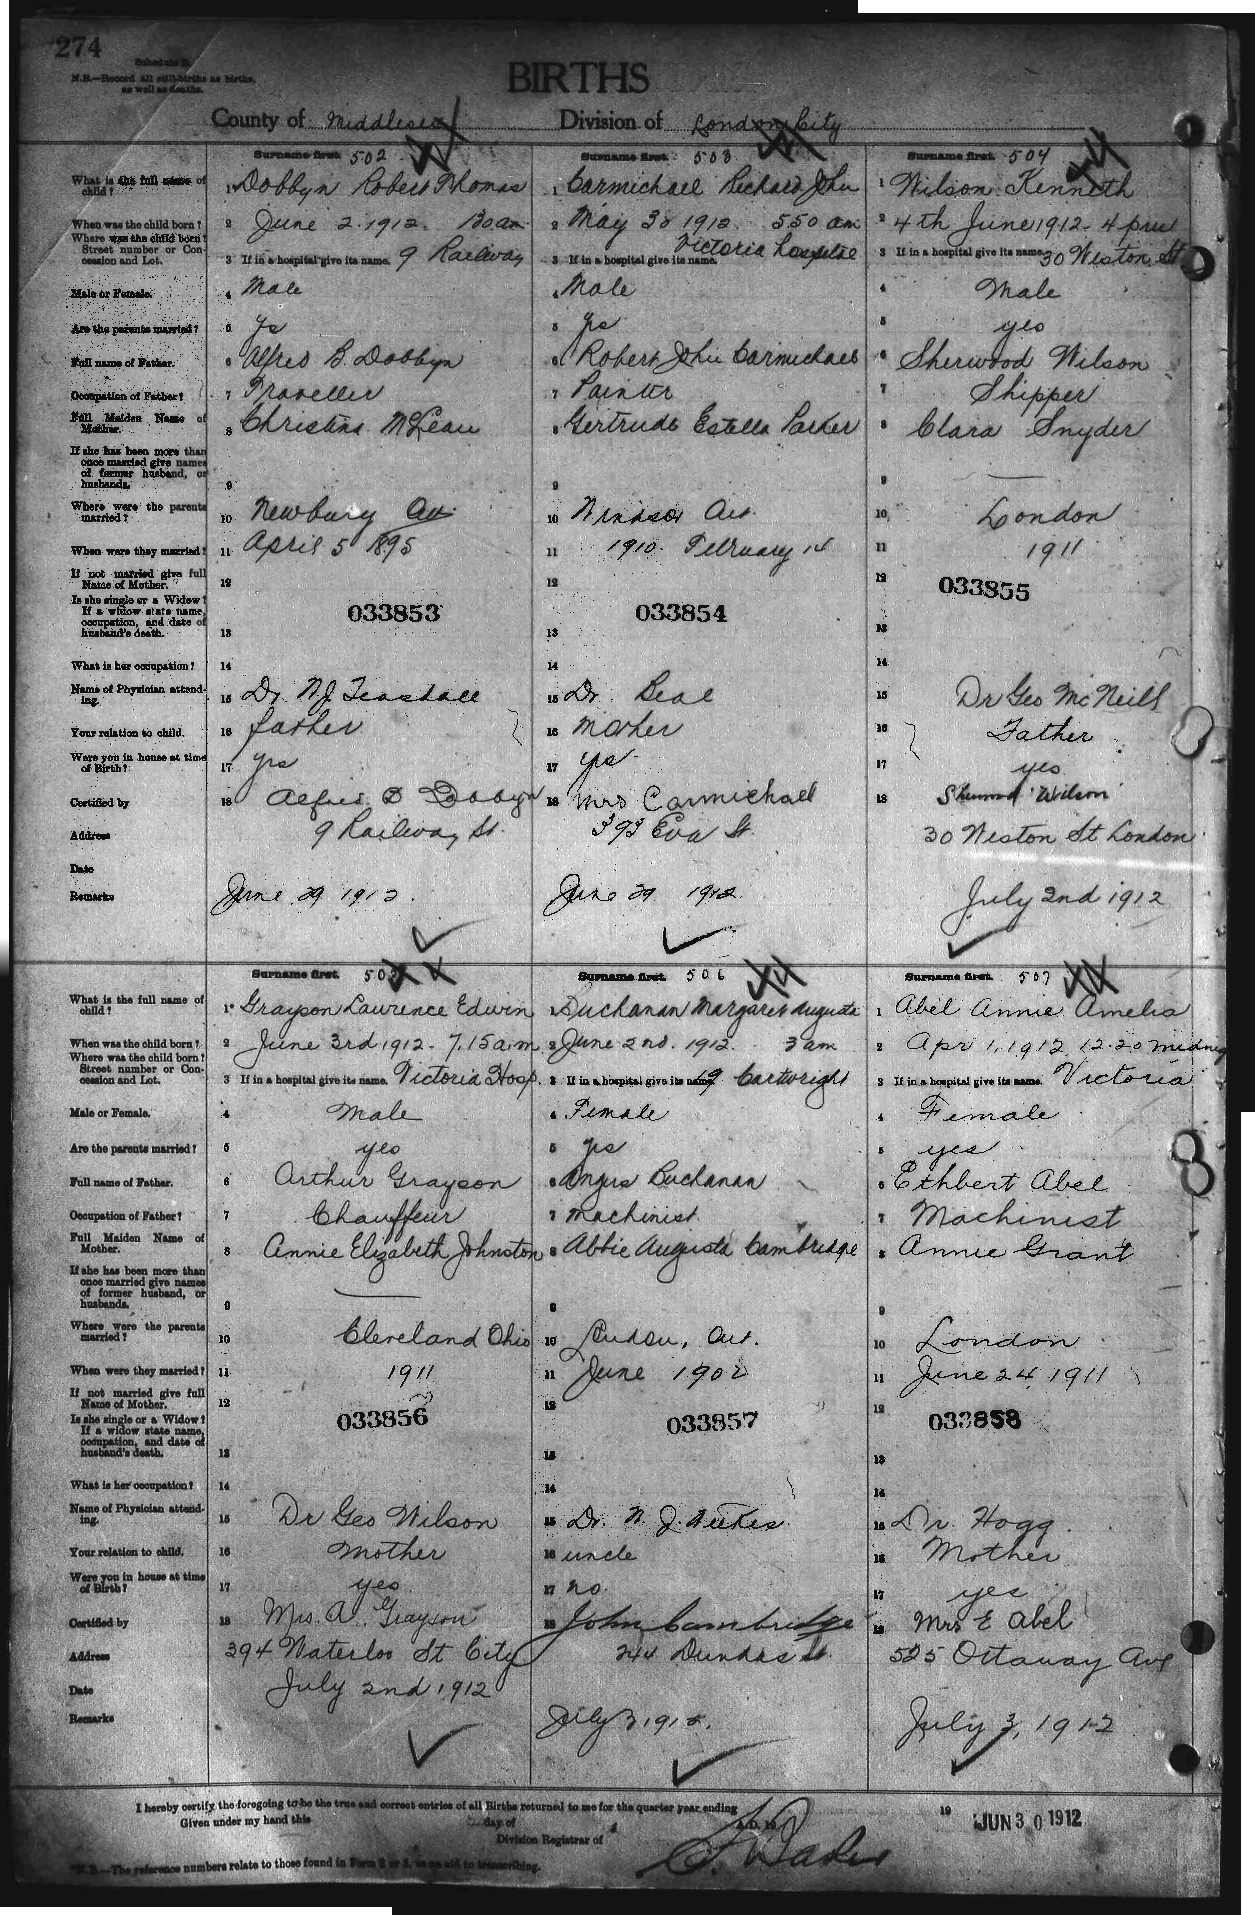 274
Schedule B.
N.B.—Record all still-births as births,
as well as deaths.
BIRTHS
County of Middlesex Division of London City
Surname first. 502
Surname first. 503
Surname first. 504
What is the full name of child? 1 Dobbyn Robert Thomas
1 Carmichael Richard John
1 Wilson Kenneth
When was the child born? 2 June 2 1912. 130 am
2 May 30 1912 550 am
2 4th June 1912 - 4 pm
Where was the child born? Street number or Concession and Lot. 3 If in a hospital give its name. 9 Railway
3 If in a hospital give its name. Victoria Hospital
3 If in a hospital give its name. 30 Weston St
Male or Female. 4 Male
4 Male
4 Male
Are the parents married? 5 yes
5 yes
5 yes
Full name of Father. 6 Alfred B. Dobbyn
6 Robert John Carmichael
6 Sherwood Wilson
Occupation of Father? 7 Traveller
7 Painter
7 Shipper
Full Maiden Name of Mother. 8 Christina McLean
8 Gertrude Estella Parker
8 Clara Snyder
If she has been more than once married give names of former husband, or husbands. 9
9
9 —
Where were the parents married? 10 Newbury Ont.
10 Windsor Ont.
10 London
When were they married? 11 April 5 1895
11 1910. February 14
11 1911
If not married give full Name of Mother. 12
12
12
Is she single or a Widow? If a widow state name, occupation, and date of husband's death. 13
13
13
033853
033854
033855
What is her occupation? 14
14
14
Name of Physician attending. 15 Dr. N.J. Teasdall
15 Dr Beal
15 Dr Geo McNeill
Your relation to child. 16 father
16 mother
16 Father
Were you in house at time of Birth? 17 yes
17 yes
17 yes
Certified by 18 Alfred B Dobbyn
18 Mrs Carmichael
18 Sherwood Wilson
Address 9 Railway St.
393 Eva St.
30 Weston St London
Date
Remarks June 29 1912.
June 29 1912
July 2nd 1912
Surname first. 505
Surname first. 506
Surname first. 507
What is the full name of child? 1 Grayson Lawrence Edwin
1 Buchanan Margaret Augusta
1 Abel Annie Amelia
When was the child born? 2 June 3rd 1912 - 7.15 a.m
2 June 2nd. 1912. 3 am
2 Apr 1, 1912 12.20 midnig
Where was the child born? Street number or Concession and Lot. 3 If in a hospital give its name. Victoria Hosp.
3 If in a hospital give its name. 19 Cartwright
3 If in a hospital give its name. Victoria
Male or Female. 4 Male
4 Female
4 Female
Are the parents married? 5 yes
5 yes
5 yes
Full name of Father. 6 Arthur Grayson
6 Angus Buchanan
6 Ethbert Abel
Occupation of Father? 7 Chauffeur
7 Machinist
7 Machinist
Full Maiden Name of Mother. 8 Annie Elizabeth Johnston
8 Abbie Augusta Cambridge
8 Annie Grant
If she has been more than once married give names of former husband, or husbands. 9 —
9
9
Where were the parents married? 10 Cleveland Ohio
10 London, Ont.
10 London
When were they married? 11 1911
11 June 1902
11 June 24, 1911
If not married give full Name of Mother. 12
12
12
Is she single or a Widow? If a widow state name, occupation, and date of husband's death. 13
13
13
033856
033857
033858
What is her occupation? 14
14
14
Name of Physician attending. 15 Dr Geo Wilson
15 Dr. N. J.
15 Dr. Hogg.
Your relation to child. 16 Mother
16 uncle
16 Mother
Were you in house at time of Birth? 17 yes
17 no.
17 yes
Certified by 18 Mrs. A. Grayson
18 John Cambridge
18 Mrs E Abel
Address 394 Waterloo St City
244 Dundas St.
525 Ottaway Ave
Date July 2nd 1912
Remarks
July 3 1912.
July 3, 1912
I hereby certify the foregoing to be the true and correct entries of all Births returned to me for the quarter year ending 19 JUN 30 1912
Given under my hand this day of A.D. 19
Division Registrar of
N.B.—The reference numbers relate to those found in Form 2 or 3, as an aid to transcribing.